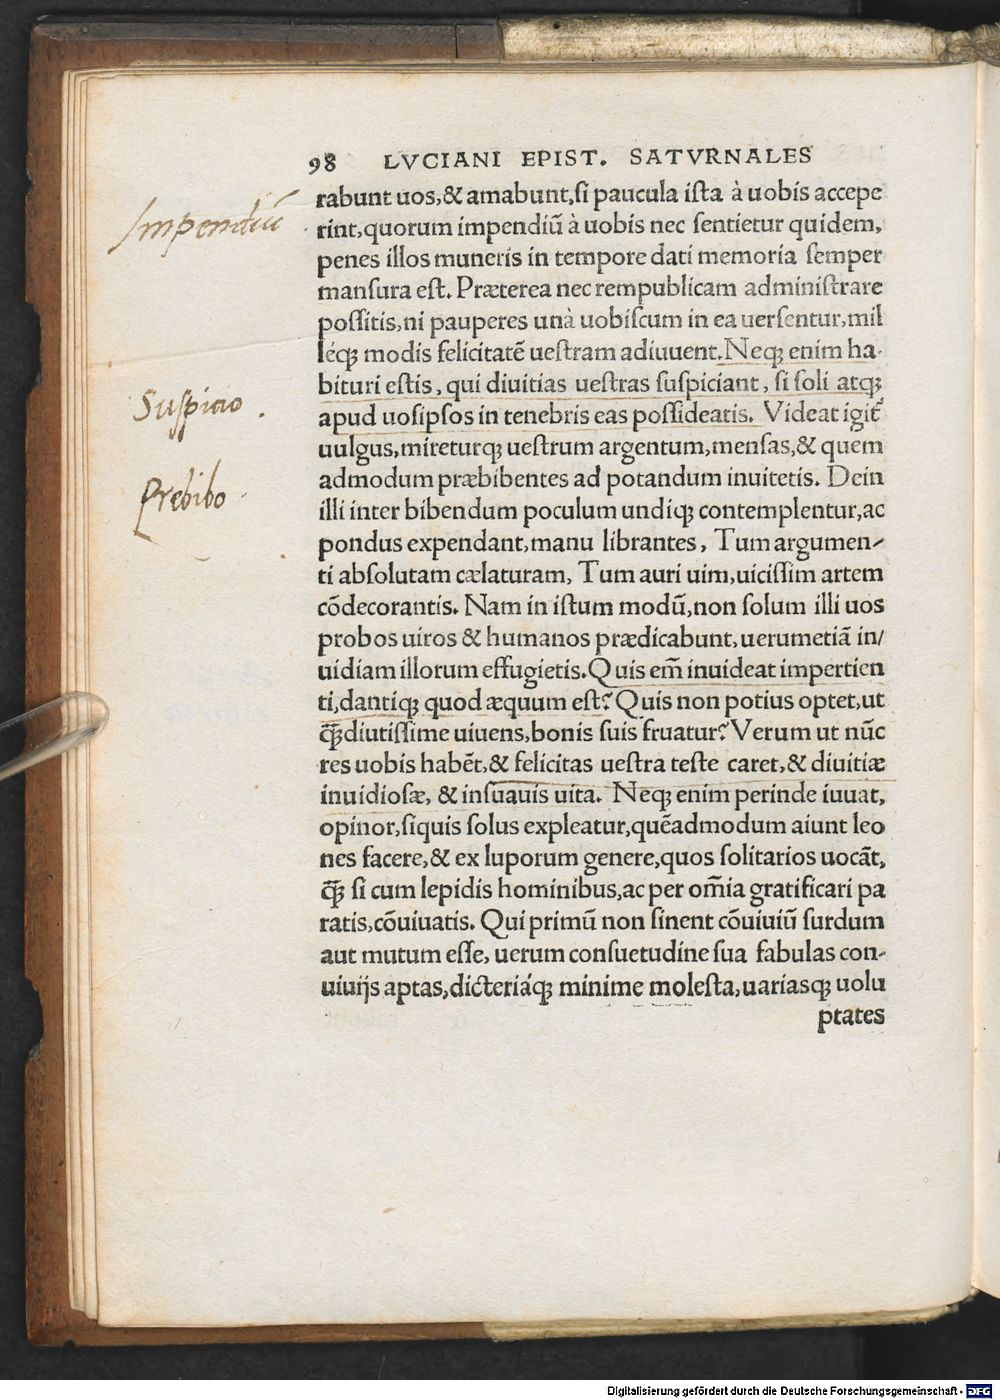 98 LVCIANI EPIST. SATVRNALES
rabunt uos,& amabunt,si paucula ista à uobis accepe
Impendiū
rint,quorum impendiū à uobis nec sentietur quidem,
penes illos muneris in tempore dati memoria semper
mansura est. Præterea nec rempublicam administrare
possitis,ni pauperes unà uobiscum in ea uersentur,mil
léqꝫ modis felicitatē uestram adiuuent.Neqꝫ enim ha-
bituri estis, qui diuitias uestras suspiciant, si soli atqꝫ
Suspicio.
apud uosipsos in tenebris eas possideatis. Videat igit᷑
uulgus,mireturqꝫ uestrum argentum,mensas,& quem
admodum præbibentes ad potandum inuitetis. Dein
Prebibo
illi inter bibendum poculum undiqꝫ contemplentur,ac
pondus expendant,manu librantes, Tum argumen-
ti absolutam cælaturam, Tum auri uim,uicissim artem
cōdecorantis. Nam in istum modū,non solum illi uos
probos uiros & humanos prædicabunt,uerumetiā in/
uidiam illorum effugietis.Quis em̄ inuideat impertien
ti,dantiqꝫ quod æquum est? Quis non potius optet,ut
q̄ꝫdiutissime uiuens,bonis suis fruatur? Verum ut nūc
res uobis habēt,& felicitas uestra teste caret,& diuitiæ
inuidiosæ, & insuauis uita. Neqꝫ enim perinde iuuat,
opinor,siquis solus expleatur,quēadmodum aiunt leo
nes facere,& ex luporum genere,quos solitarios uocāt,
q̄ꝫ si cum lepidis hominibus,ac per om̄ia gratificari pa
ratis,cōuiuatis. Qui primū non sinent cōuiuiū surdum
aut mutum esse, uerum consuetudine sua fabulas con-
uiuijs aptas,dicteriáqꝫ minime molesta,uariasqꝫ uolu
ptates
Digitalisierung gefördert durch die Deutsche Forschungsgemeinschaft - DFG